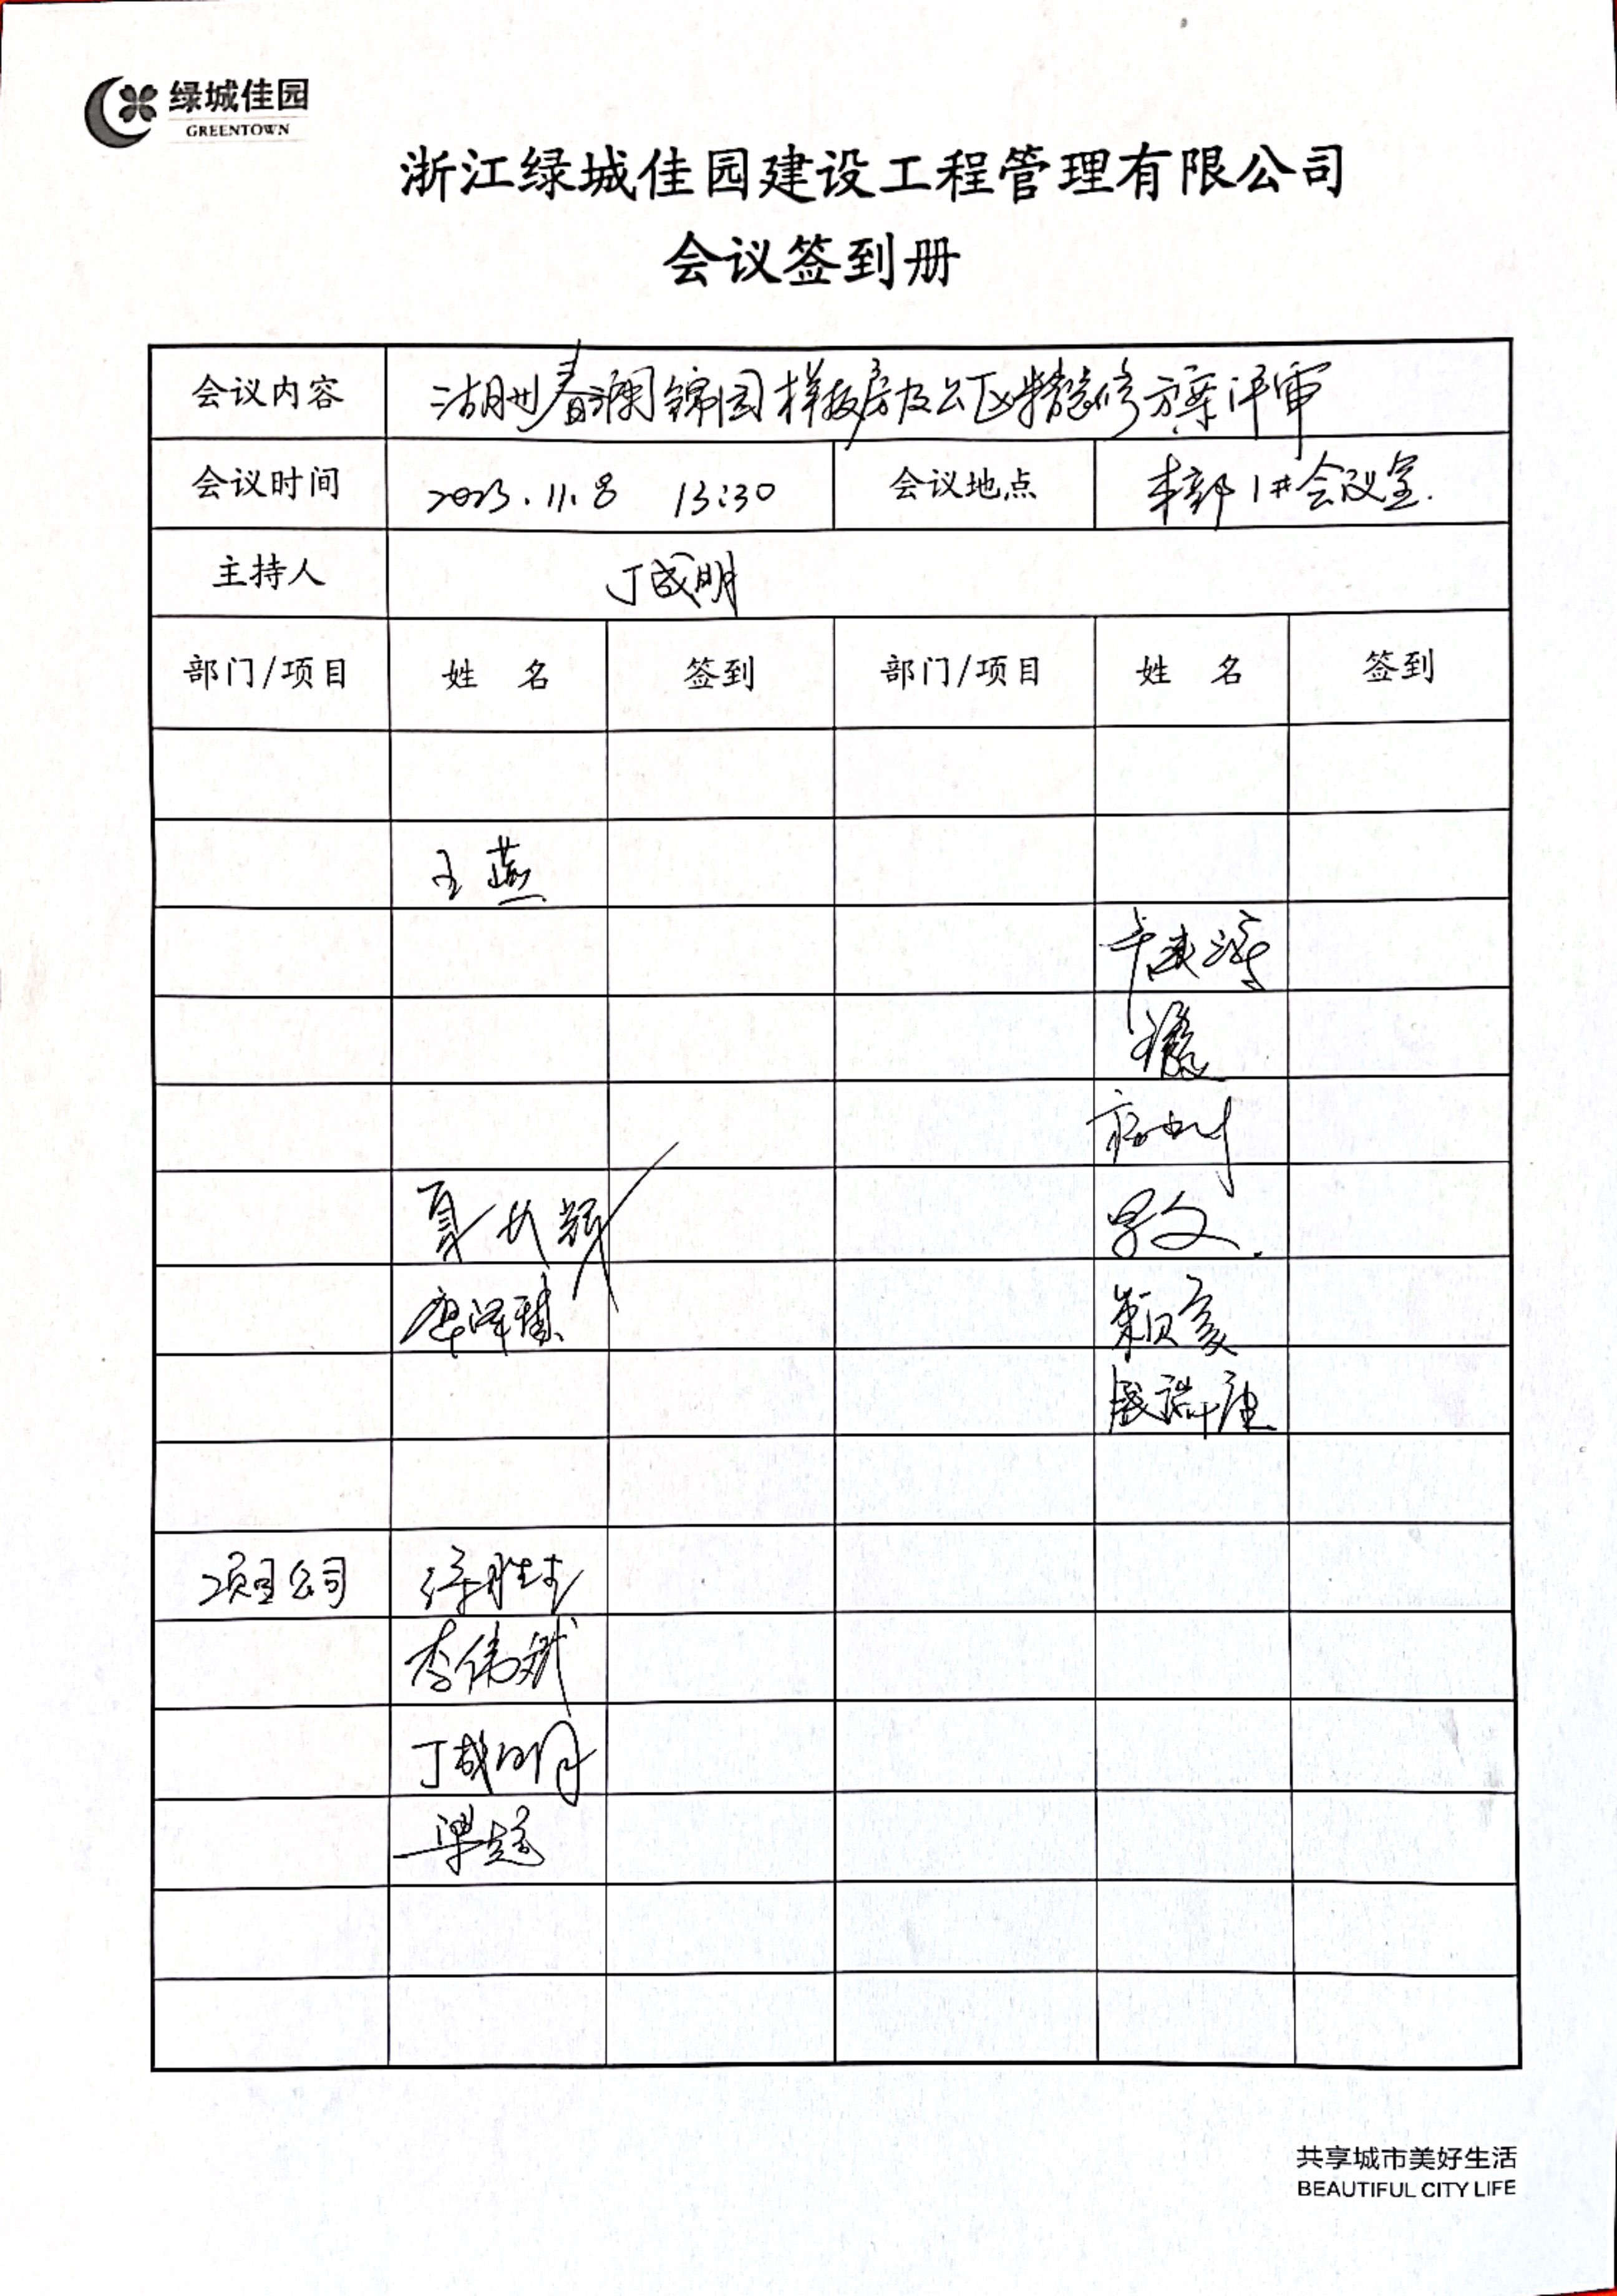 绿城佳园
GREENTOWN
浙江绿城佳园建设工程管理有限公司
会议签到册
会议内容 湖州春澜锦园样板房及公区精装修方案评审
会议时间 2023.11.8 13:30 会议地点 本部1#会议室.
主持人 丁成明
部门/项目 姓 名 签到 部门/项目 姓 名 签到
王燕
夏长辉
廖泽霖
项目公司
李伟斌
丁成明
梁超
共享城市美好生活
BEAUTIFUL CITY LIFE